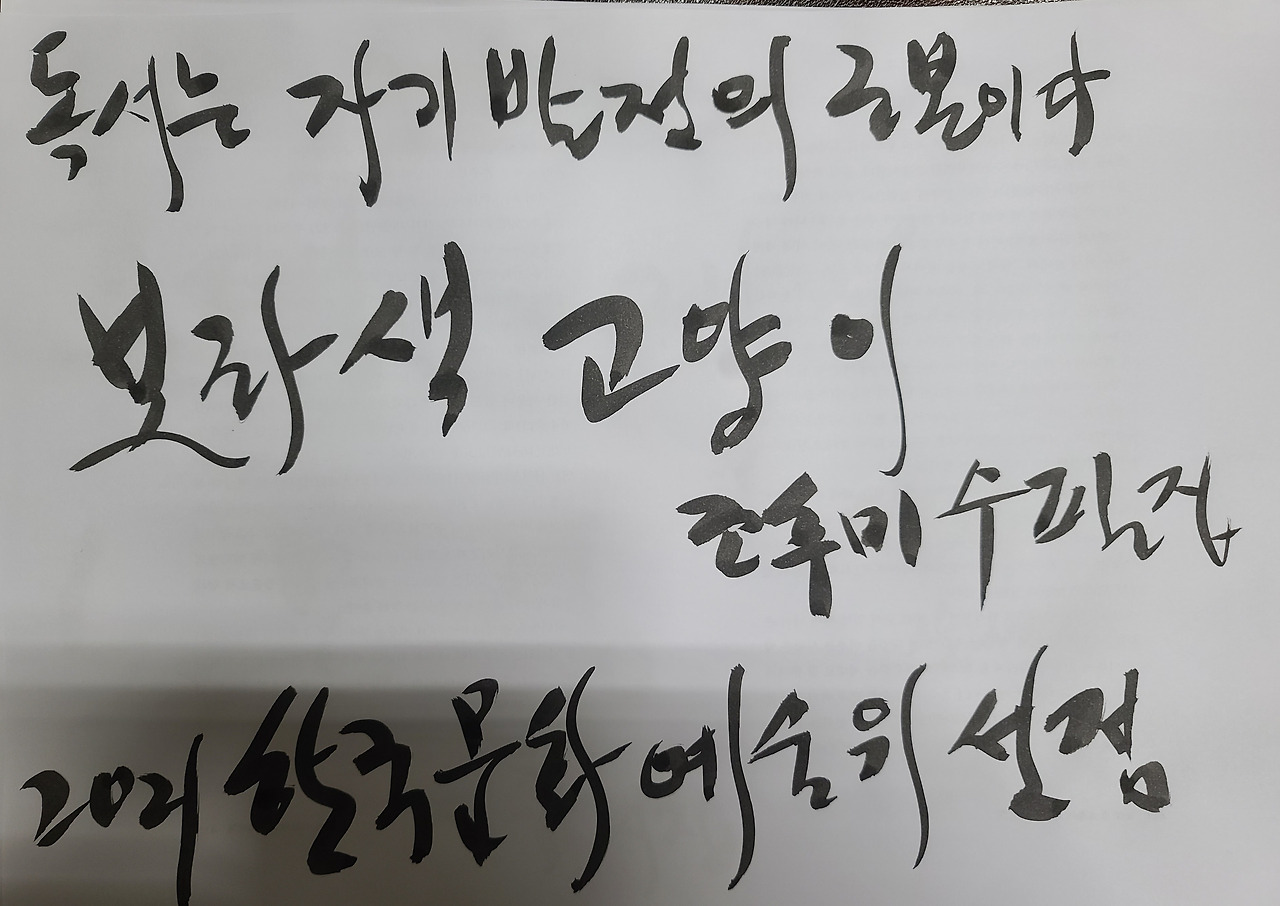 독서는 자기발전의 근본이다
보라색 고양이
조후미 수필집
2021 한국문화예술위 선정